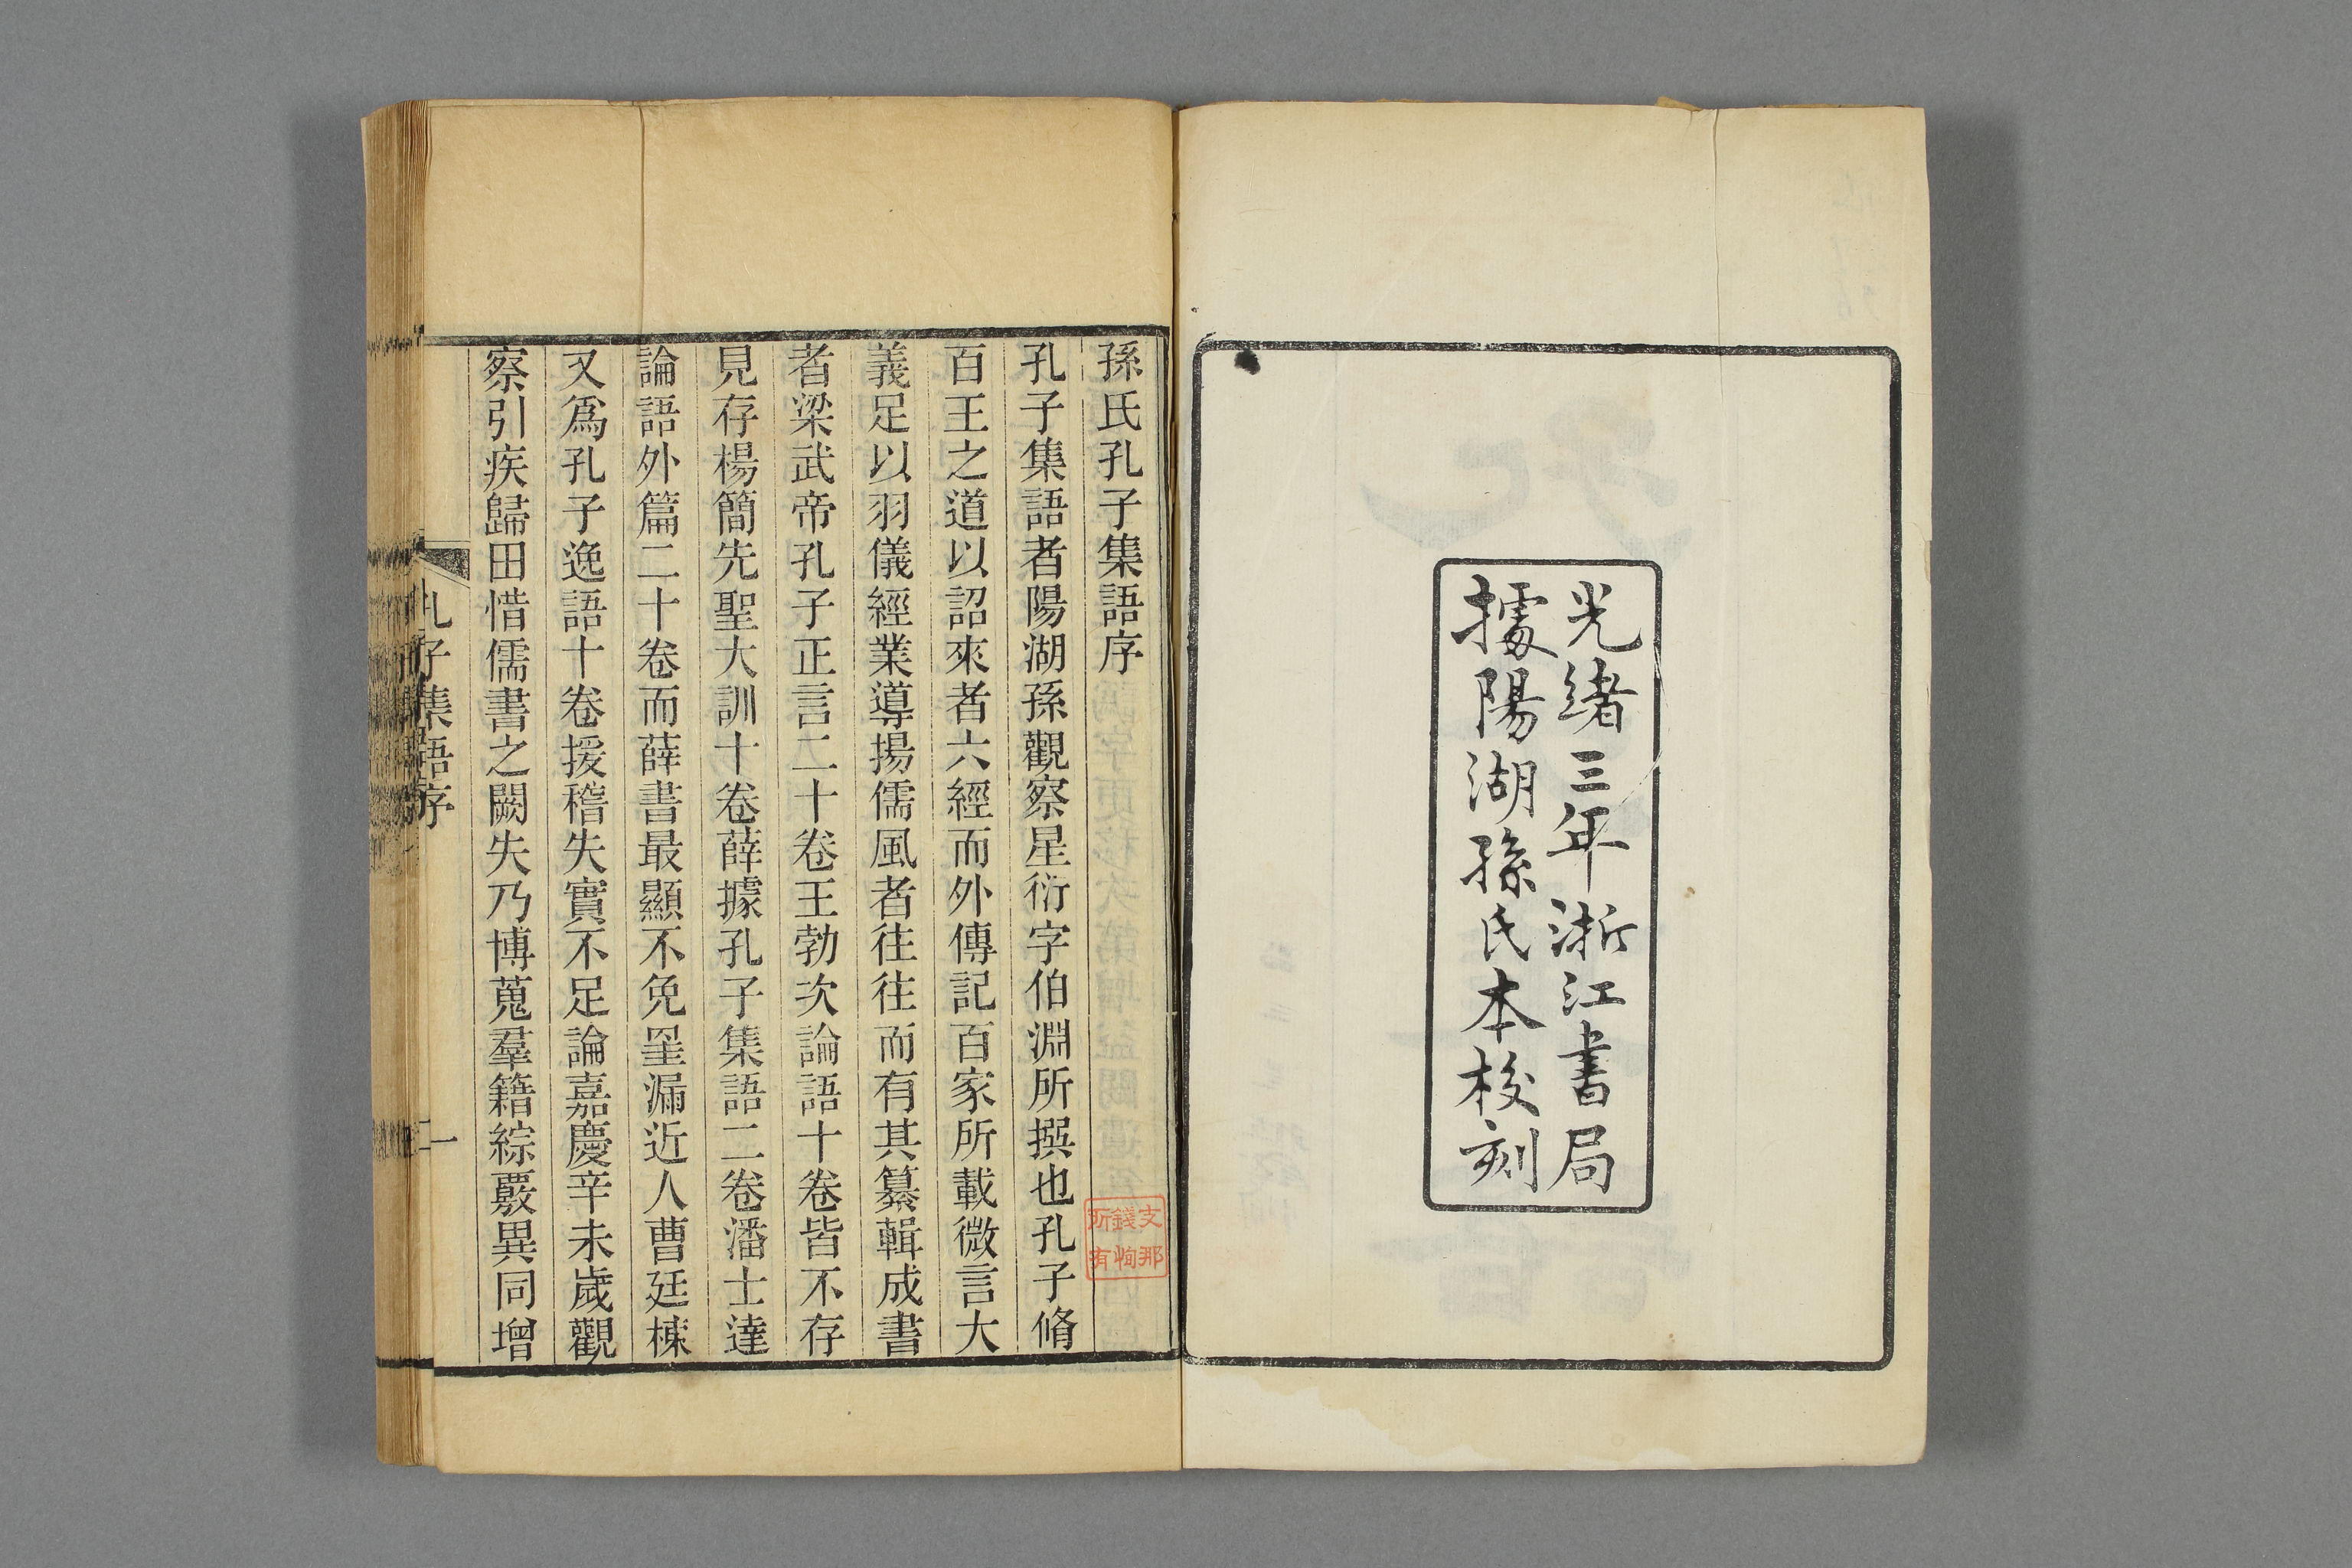 光緒三年浙江書局
據陽湖孫氏本校刻
孫氏孔子集語序
孔子集語者陽湖孫觀察星衍字伯淵所撰也孔子脩
百王之道以詔來者六經而外傳記百家所載微言大
義足以羽儀經業導揚儒風者往往而有其纂輯成書
者梁武帝孔子正言二十卷王勃次論語十卷皆不存
見存楊簡先聖大訓十卷薛據孔子集語二卷潘士達
論語外篇二十卷而薛書最顯不免罣漏近人曹廷棟
又爲孔子逸語十卷援稽失實不足論嘉慶辛未歲觀
察引疾歸田惜儒書之闕失乃博蒐羣籍綜覈異同增
孔子集語序
一
支那
錢恂
所有